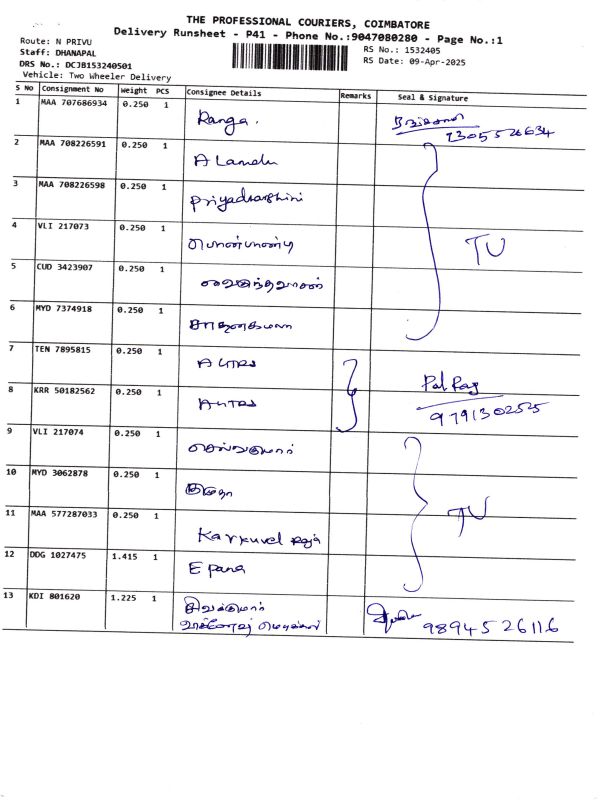 THE PROFESSIONAL COURIERS, COIMBATORE
Delivery Runsheet - P41 - Phone No.:9047080280 - Page No.:1
Route: N PRIVU
Staff: DHANAPAL
DRS No.: DCJB153240501
Vehicle: Two Wheeler Delivery
RS No.: 1532405
RS Date: 09-Apr-2025
S No Consignment No Weight PCS Consignee Details Remarks Seal & Signature
1 MAA 707686934 0.250 1 Ranga.
2 MAA 708226591 0.250 1 A Lamelu
3 MAA 708226598 0.250 1 Priyadharshini
4 VLI 217073 0.250 1 பொன்பாண்டி
TU
5 CUD 3423907 0.250 1
6 MYD 7374918 0.250 1
7 TEN 7895815 0.250 1
8 KRR 50182562 0.250 1
Pal Raj
9791302525
9 VLI 217074 0.250 1 செல்வகுமார்
10 MYD 3062878 0.250 1
11 MAA 577287033 0.250 1 Karkuvel Raja
TU
12 DDG 1027475 1.415 1 E Pana
13 KDI 801620 1.225 1 சிவக்குமார்
9894526116